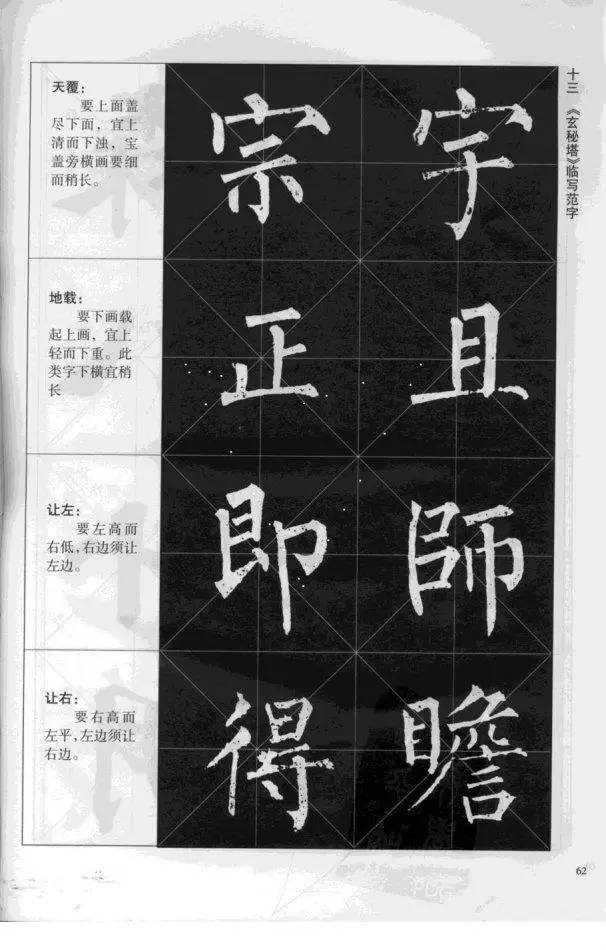 十三 《玄秘塔》临写范字
天覆：
要上面盖
尽下面，宜上
清而下浊，宝
盖旁横画要细
而稍长。
宗 宇
地载：
要下画载
起上画，宜上
轻而下重。此
类字下横宜稍
长
正 且
让左：
要左高而
右低，右边须让
左边。
即 師
让右：
要右高而
左平，左边须让
右边。
得 瞻
62